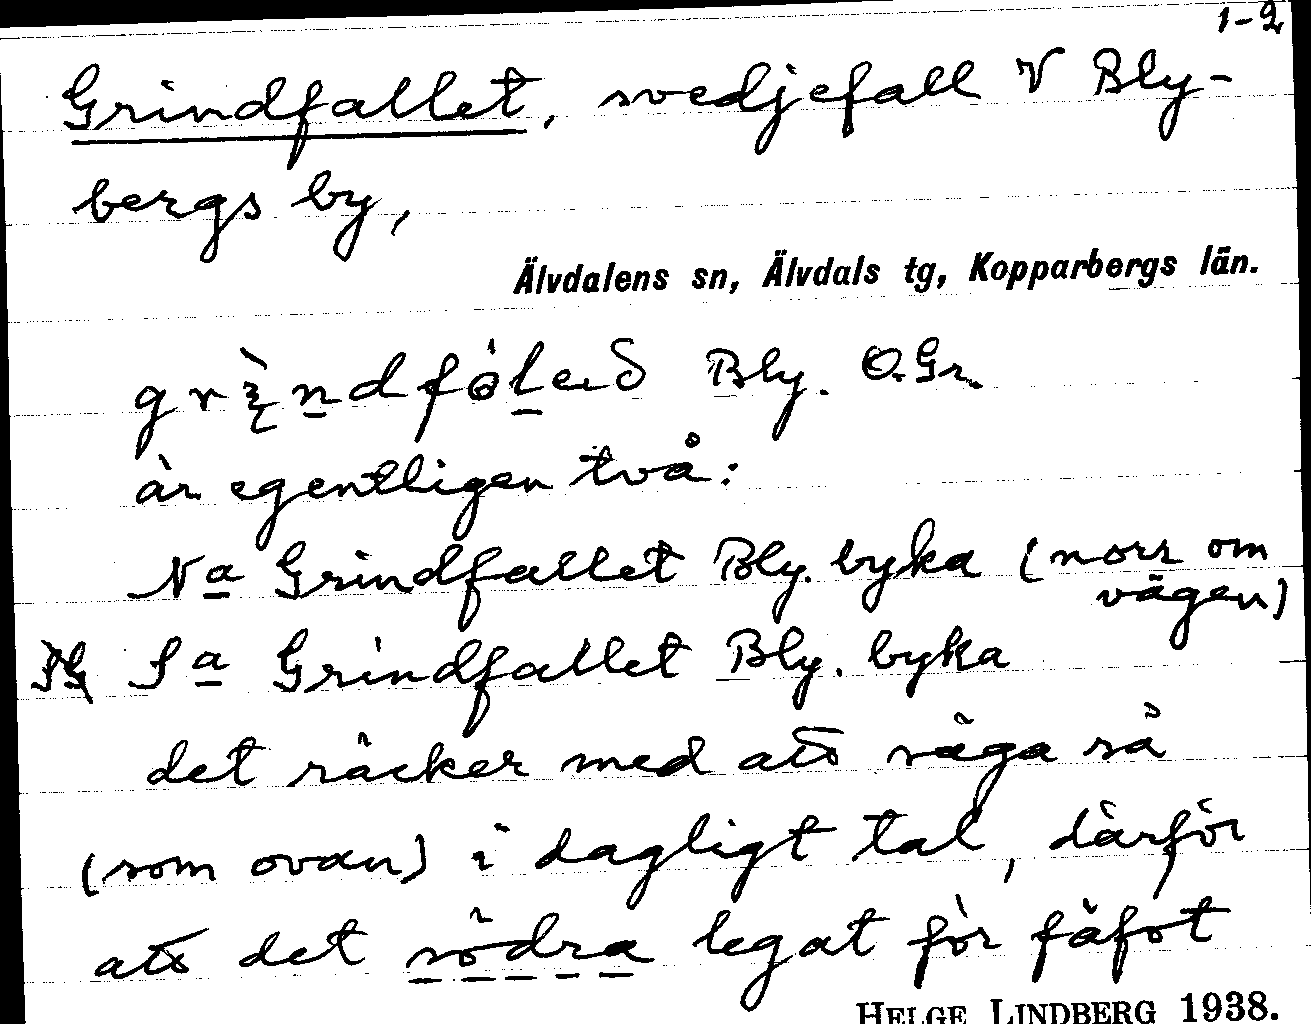 1-2
Grindfallet, svedjefall V Bly-
bergs by,
Älvdalens sn, Älvdals tg, Kopparbergs län.
Bly. O.Gr.
är egentligen två:
Na Grindfallet Bly. byka (norr om
vägen)
Sa Grindfallet Bly. byka
det räcker med att säga så
(som ovan) i dagligt tal, därför
att det södra legat för fäfot
HELGE LINDBERG 1938.